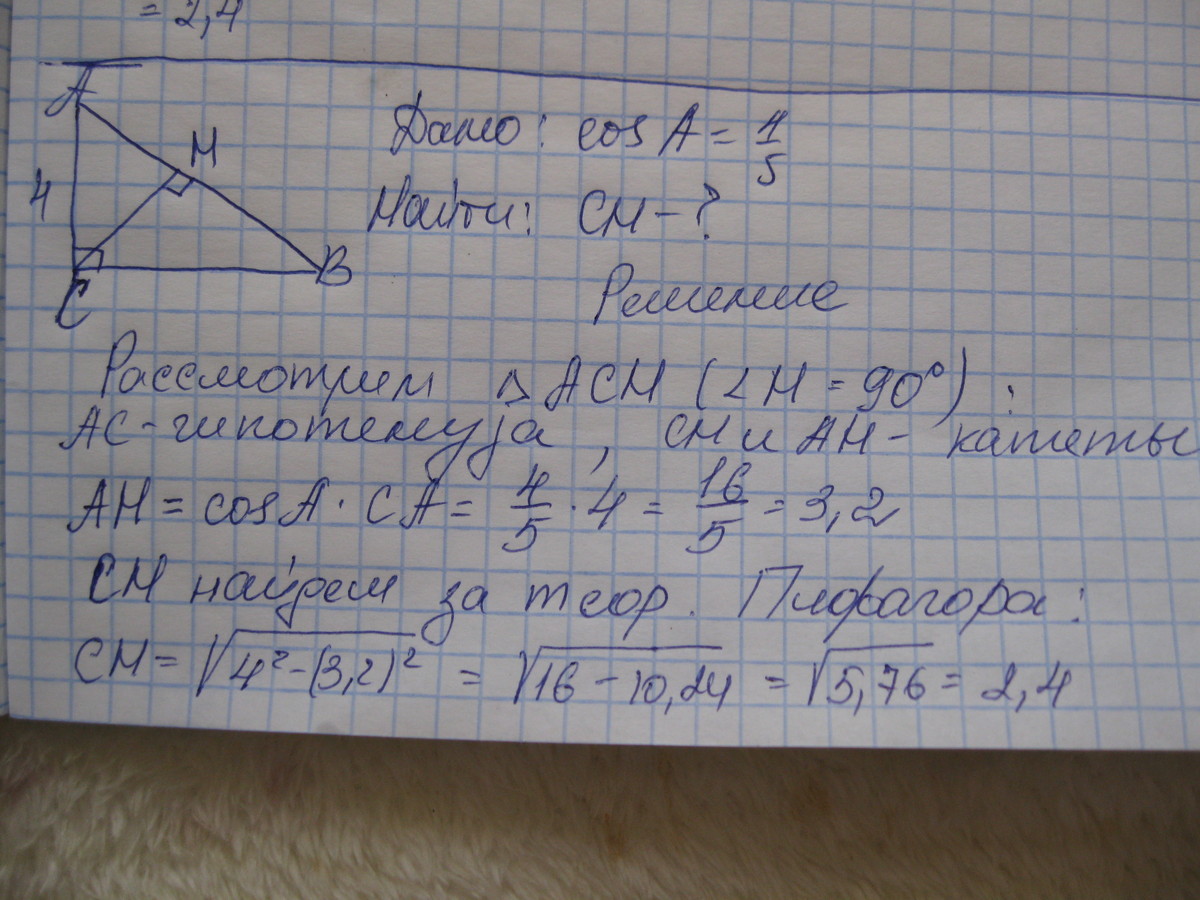 = 2,4
A
H
4
C
B
Дано: cos A = 4/5
Найти: CH - ?
Решение
Рассмотрим △ ACH (∠H = 90°) :
AC - гипотенуза, CH и AH - катеты
AH = cosA · CA = 4/5 · 4 = 16/5 = 3,2
CH найдем за теор. Пифагора:
CH = √4² - (3,2)² = √16 - 10,24 = √5,76 = 2,4